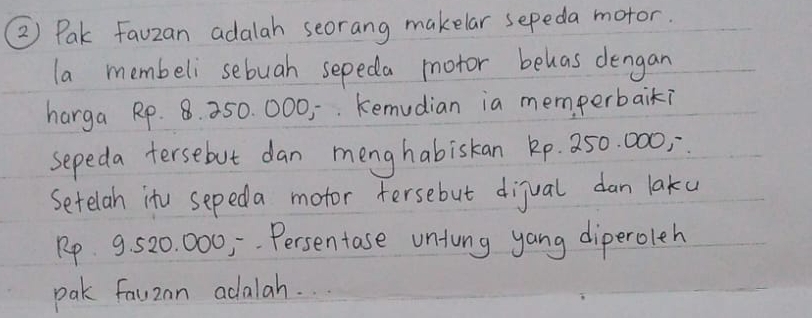 ② Pak Fauzan adalah seorang makelar sepeda motor.
Ia membeli sebuah sepeda motor bekas dengan
harga Rp. 8.250.000,-. Kemudian ia memperbaiki
sepeda tersebut dan menghabiskan Rp. 250.000,-.
Setelah itu sepeda motor tersebut dijual dan laku
Rp. 9.520.000,-. Persentase untung yang diperoleh
pak Fauzan adalah...